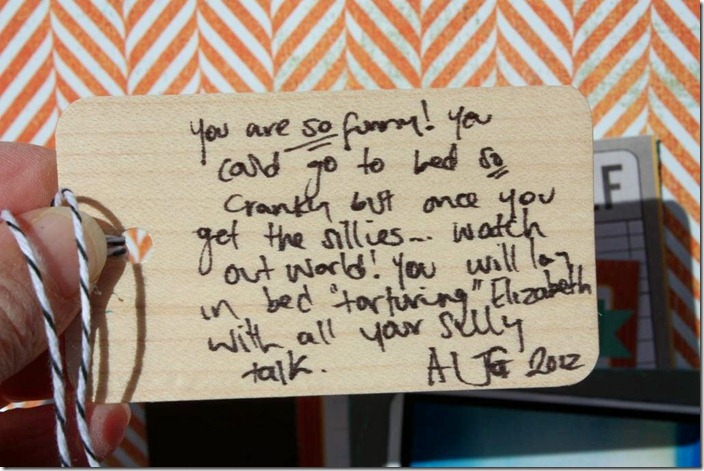 You are so funny! You
could go to bed so
cranky but once you
get the sillies... watch
out world! You will lay
in bed "torturing" Elizabeth
with all your silly
talk. AUG 2012
LF